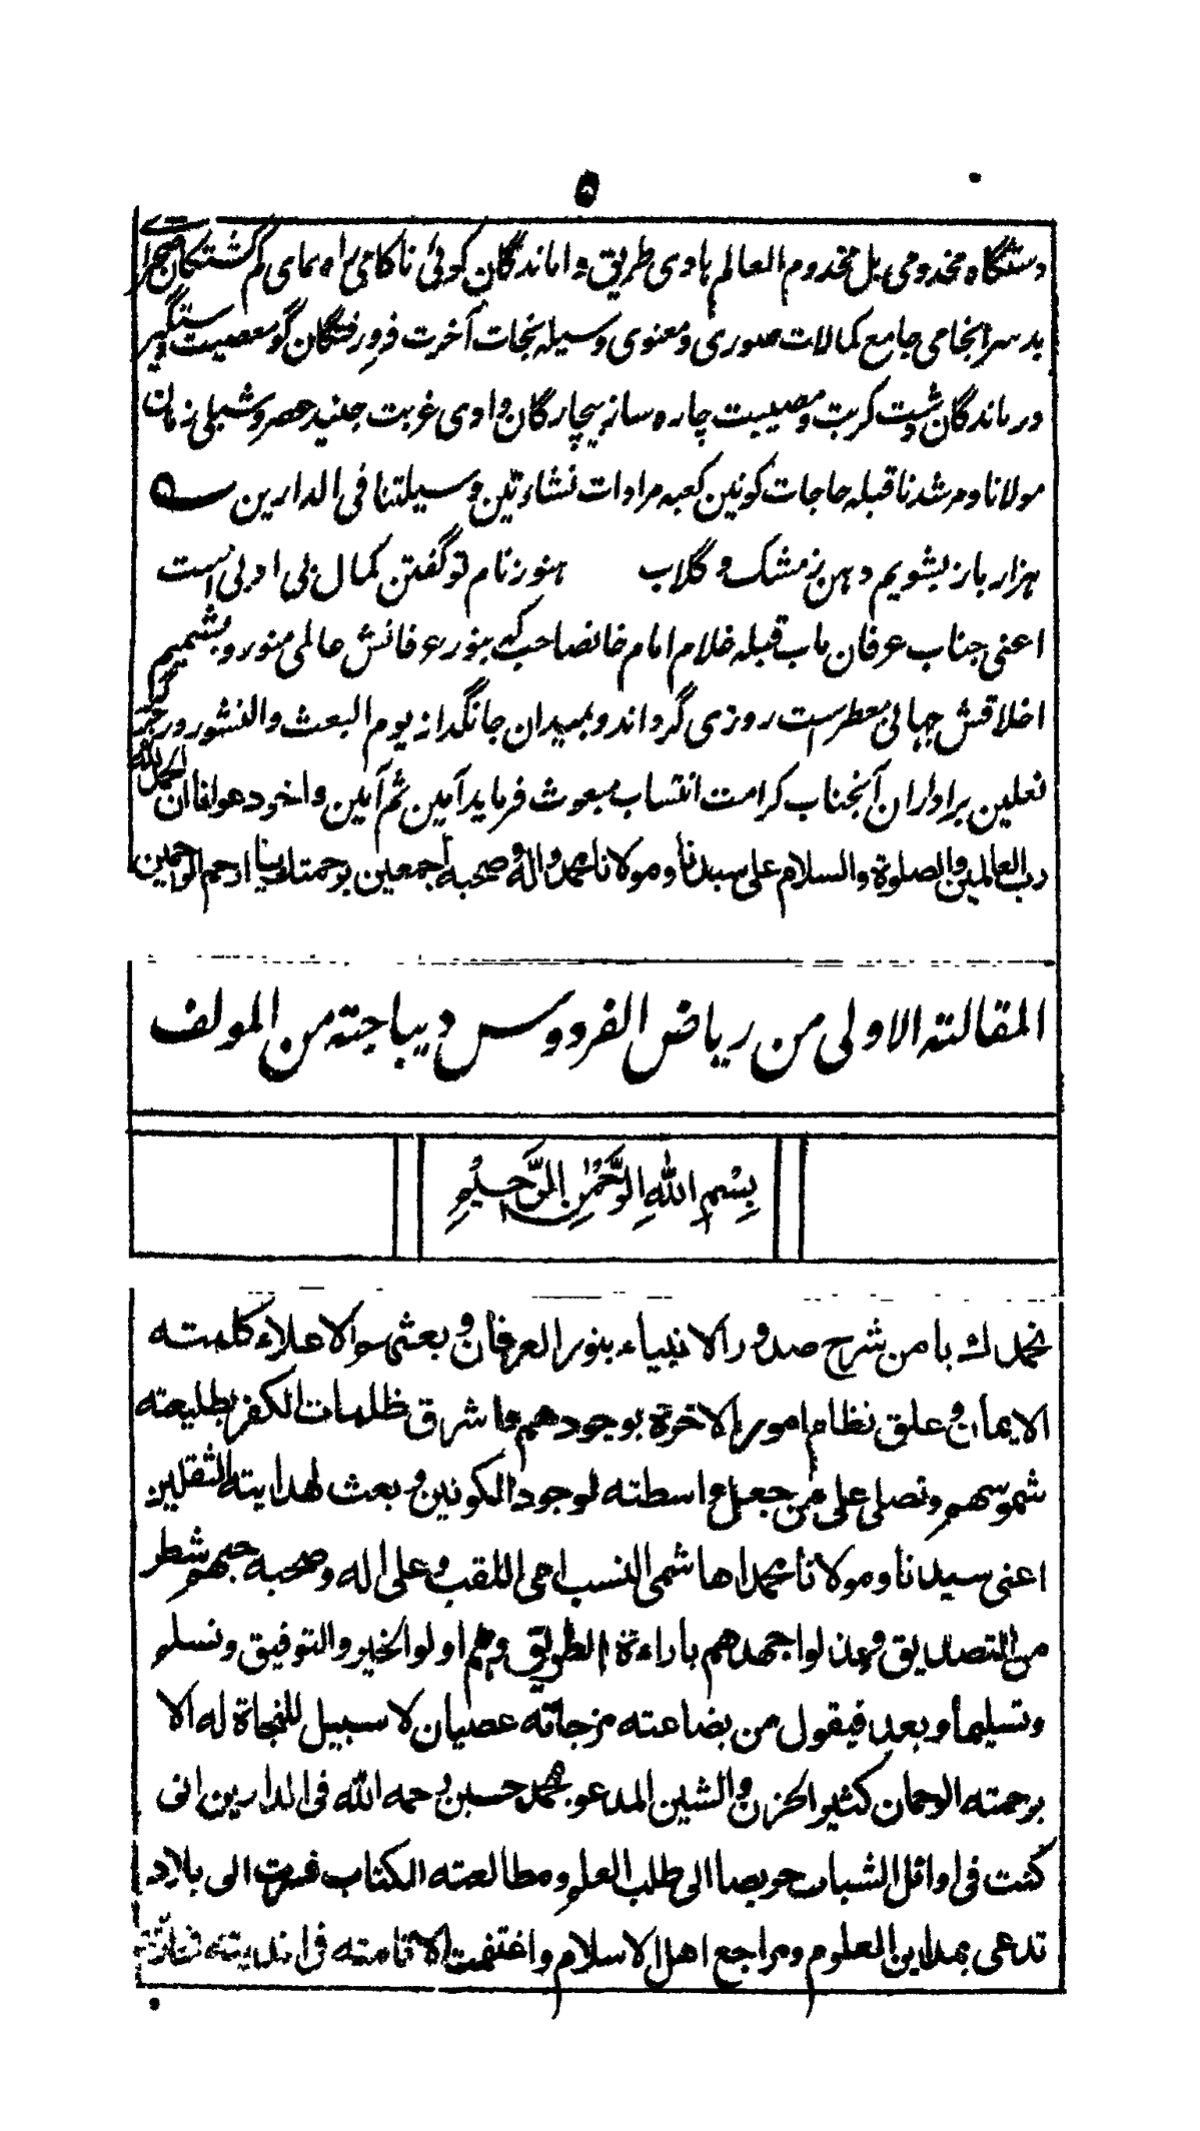 ۵
دستگاه مخدومی بل مخدوم العالم هادی طریق واماندگان کوئی ناکامی راه نمای گم گشتگان صحرای
بد سرانجامی جامع کمالات صوری و معنوی وسیله نجات آخرت فرورفتگان گو معصیت دستگیر
درماندگان دشت کربت و مصیبت چاره ساز بیچارگان وادی غربت جنید عصر و شبلی زمان
مولانا ومرشدنا قبله حاجات کونین کعبه مرادات نشاءتین وسیلتنا فی الدارین ـه
هزار بار بشویم دهن ز مشک و گلاب هنوز نام تو گفتن کمال بی ادبی است
اعنی جناب عرفان ماب قبله غلام امام خانصاحب که بنور عرفانش عالمی منور و بشمیم
اخلاقش جهانی معطر است روزی گرداند و بمیدان جانگداز یوم البعث والنشور در
نعلین برداران آنجناب کرامت انتساب مبعوث فرماید آمین ثم آمین واخر دعوانا ان الحمد لله
رب العالمین والصلوة والسلام علی سیدنا ومولانا محمد واله وصحبه اجمعین برحمتک یا ارحم الراحمین
المقالته الاولی من ریاض الفردوس دیباجته من المولف
بِسْمِ اللهِ الرَّحْمٰنِ الرَّحِیْمِ
نحمدك یا من شرح صدور الانبیاء بنور العرفان و بعثهم لاعلاء کلمته
الایمان وعلق نظام امور الاخرة بوجودهم ما شرق ظلمات الکفر بطلیعته
شموسهم ونصلی علی من جعل واسطته لوجود الکونین وبعث لهدایته الثقلین
اعنی سیدنا ومولانا محمدا هاشمی النسب امی اللقب وعلی اله وصحبه حبهم شطر
من التصدیق وبذلوا جهدهم باراءة الطریق وهم اولو الخیر والتوفیق ونسلم
وتسلیما وبعد فیقول من بضاعته مزجاته عصیان لا سبیل للنجاة له الا
برحمته الرحمان کثیر الحزن والشین المدعو بمحمد حسین رحمه الله فی الدارین انی
کنت فی اوائل الشباب حریصا الی طلب العلم ومطالعته الکتاب فسرت الی بلاد
تدعی بمداین العلوم ومراجع اهل الاسلام واغتنمت الاقامته فی اندیته